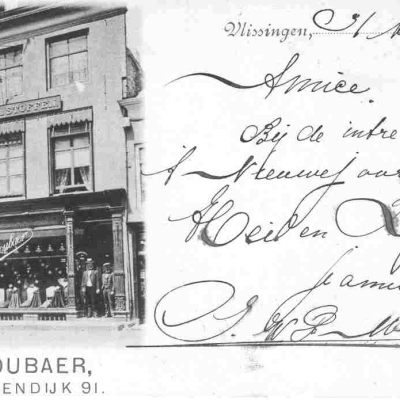 STOFFEN
Vlissingen, 31
Amice.
Bij de intre
't Nieuwejaar
Heil en
je amic
OUBAER,
ENDIJK 91.